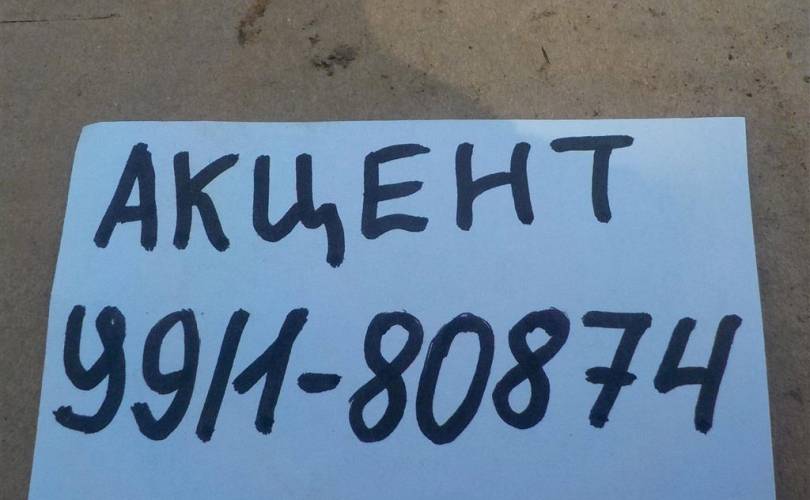 АКЦЕНТ
У9Л-80874